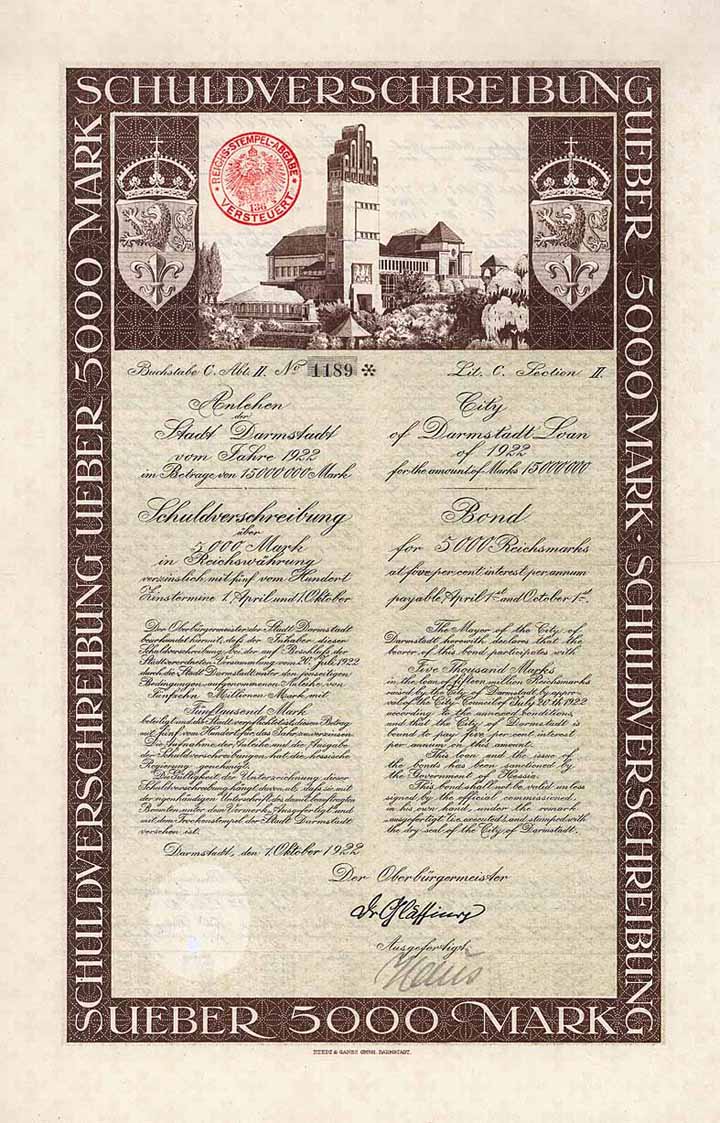 SCHULDVERSCHREIBUNG
UEBER 5000 MARK · SCHULDVERSCHREIBUNG
UEBER 5000 MARK
SCHULDVERSCHREIBUNG UEBER 5000 MARK
REICHS-STEMPEL-ABGABE
136
VERSTEUERT
Buchstabe C. Abt. II. No 1189 *
Anlehen
der
Stadt Darmstadt
vom Jahre 1922
im Betrage von 15000000 Mark
Schuldverschreibung
über
5000 Mark
in Reichswährung
verzinslich mit fünf vom Hundert
Zinstermine 1. April und 1. Oktober
Der Oberbürgermeister der Stadt Darmstadt
beurkundet hiermit, daß der Inhaber dieser
Schuldverschreibung bei der auf Beschluß der
Stadtverordneten-Versammlung vom 20. Juli 1922
durch die Stadt Darmstadt unter den jenseitigen
Bedingungen aufgenommenen Anleihe von
Fünfzehn Millionen Mark mit
Fünftausend Mark
beteiligt und die Stadt verpflichtet ist, diesen Betrag
mit fünf vom Hundert für das Jahr zu verzinsen.
Die Aufnahme der Anleihe und die Ausgabe
der Schuldverschreibungen hat die hessische
Regierung genehmigt.
Die Gültigkeit der Unterzeichnung dieser
Schuldverschreibung hängt davon ab, daß sie mit
der eigenhändigen Unterschrift des damit beauftragten
Beamten unter dem Vermerk „Ausgefertigt“ und
mit dem Trockenstempel der Stadt Darmstadt
versehen ist.
Darmstadt, den 1. Oktober 1922
Lit. C. Section II.
City
of Darmstadt Loan
of 1922
for the amount of Marks 15000000
Bond
for 5000 Reichsmarks
at five per cent interest per annum
payable April 1st and October 1st.
The Mayor of the City of
Darmstadt herewith declares that the
bearer of this bond participates with
Five Thousand Marks
in the loan of fifteen million Reichsmarks
raised by the City of Darmstadt by appro-
val of the City Council of July 20th 1922
according to the annexed conditions,
and that the City of Darmstadt is
bound to pay five per cent interest
per annum on this amount.
This loan and the issue of
the bonds has been sanctioned by
the Government of Hessia.
This bond shall not be valid unless
signed by the official commissioned,
in his own hand, under the remark
„ausgefertigt“ (i.e. executed), and stamped with
the dry seal of the City of Darmstadt.
Der Oberbürgermeister
Dr Glässing
Ausgefertigt: